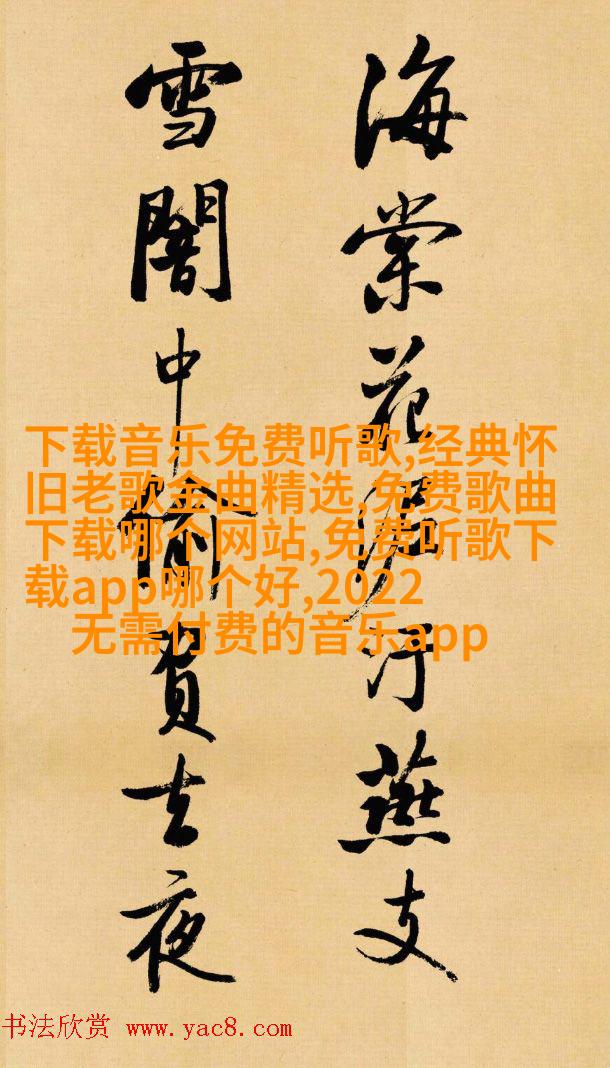 海棠花泥汙燕支
雪闇中偷負去夜
下载音乐免费听歌,经典怀
旧老歌金曲精选,免费歌曲
下载哪个网站,免费听歌下
载app哪个好,2022
无需付费的音乐app
书法欣赏 www.yac8.com